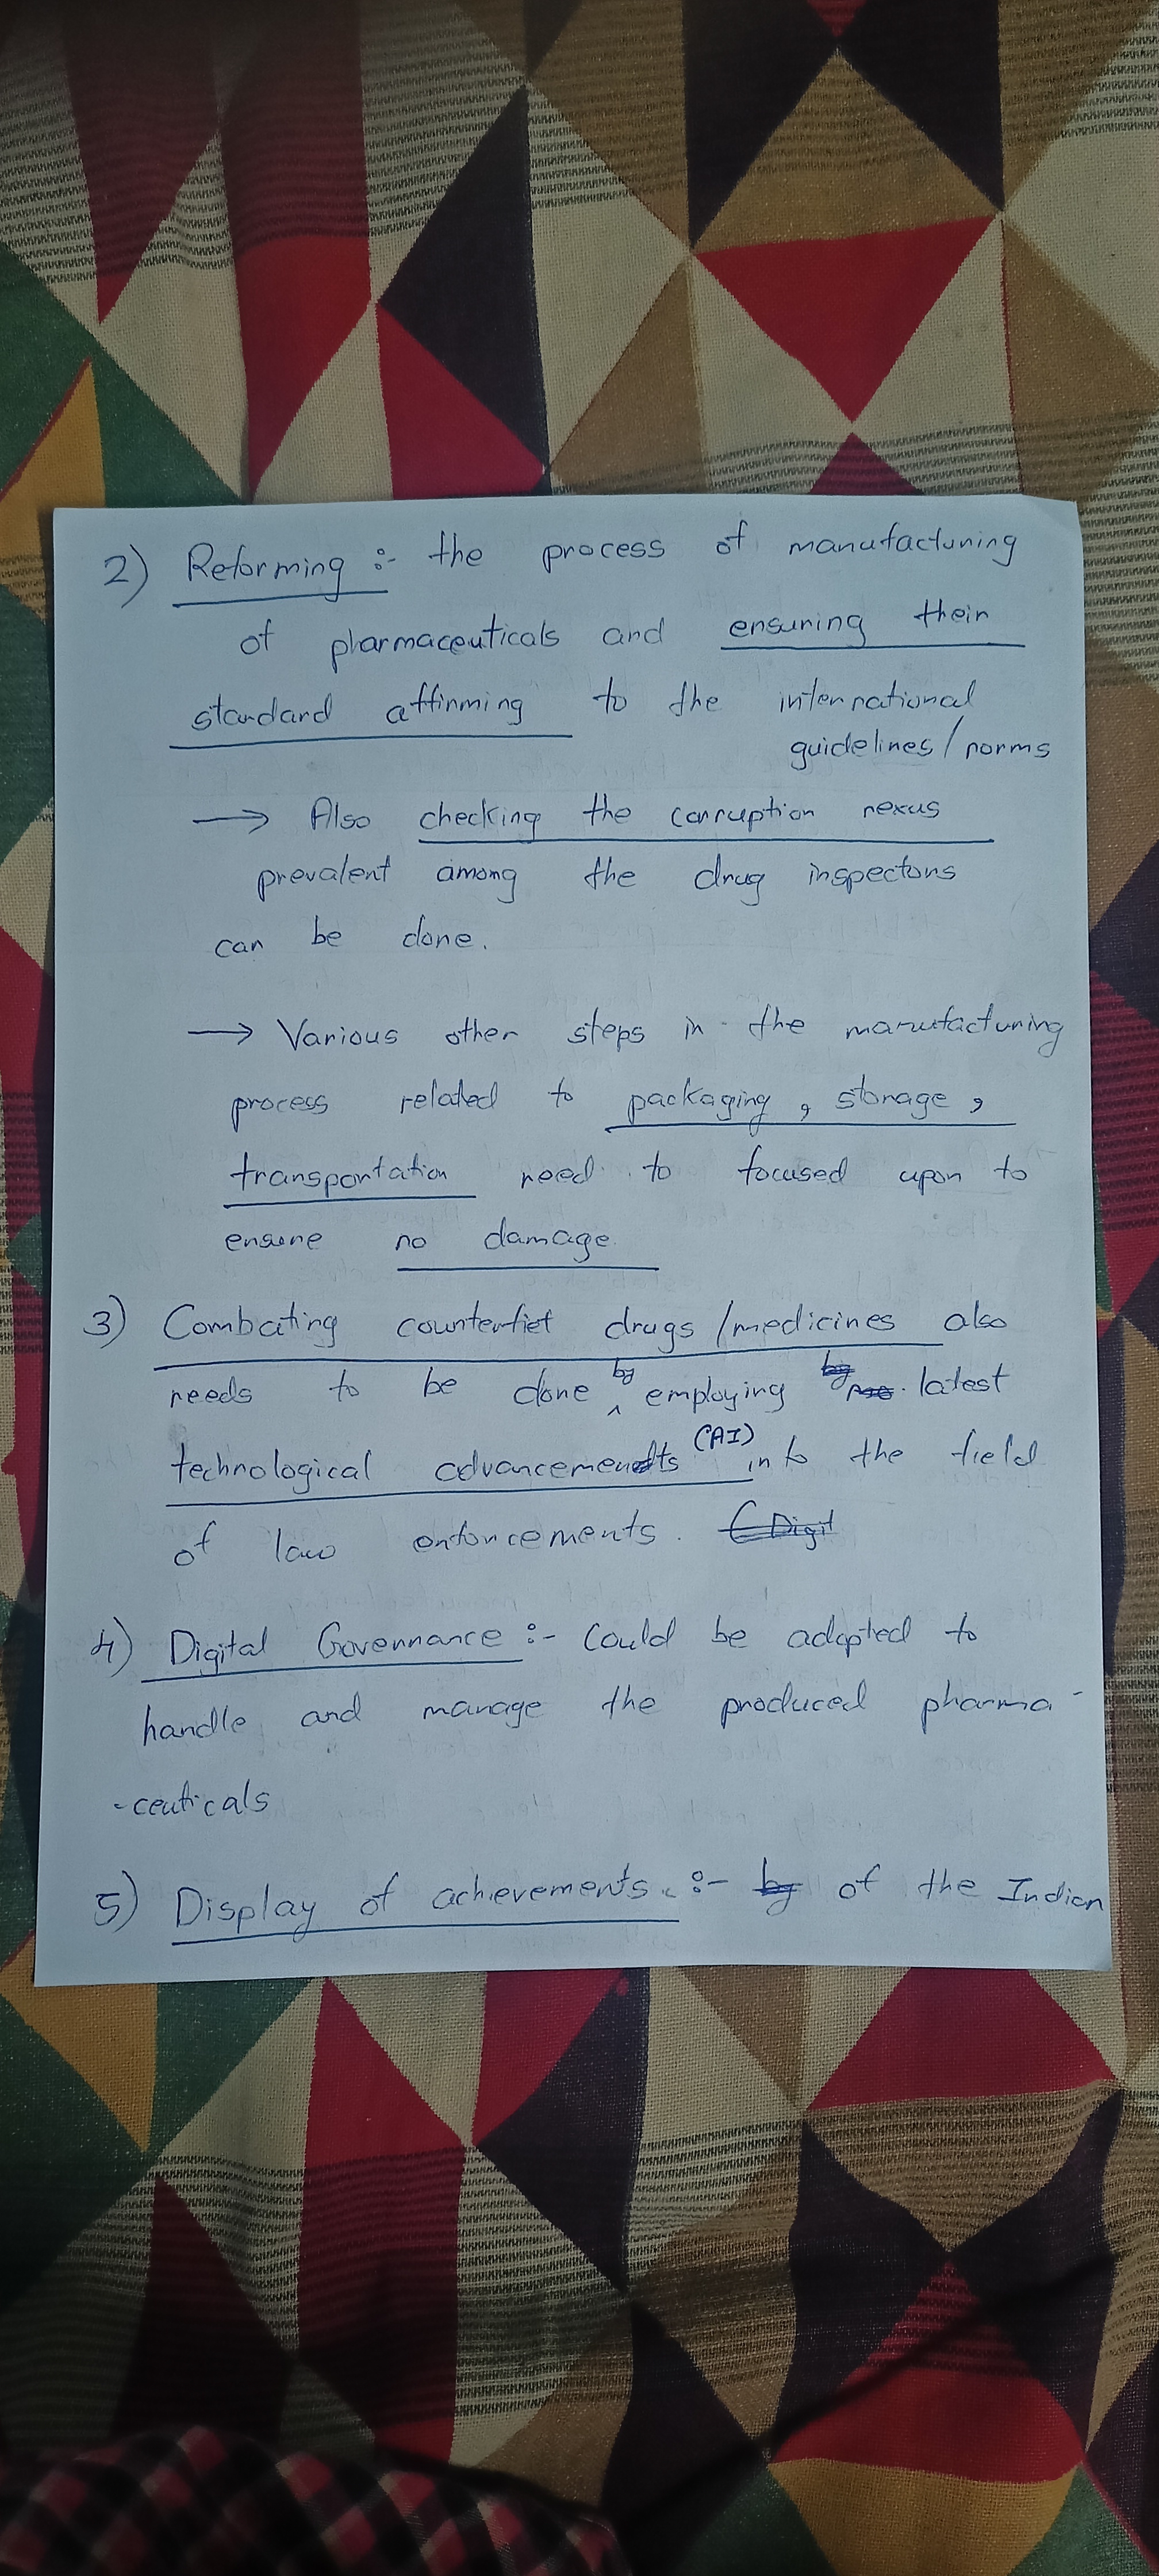 2) Reforming :- the process of manufacturing
of pharmaceuticals and ensuring their
standard affirming to the international
guidelines/norms
→ Also checking the corruption nexus
prevalent among the drug inspectors
can be done.
→ Various other steps in the manufacturing
process related to packaging, storage,
transportation need to focused upon to
ensure no damage
3) Combating counterfiet drugs/medicines also
needs to be done by employing latest
technological advancements (AI) into the field
of law enforcements. (Digit
4) Digital Governance :- Could be adopted to
handle and manage the produced pharma-
-ceuticals
5) Display of achievements. :- by of the Indian